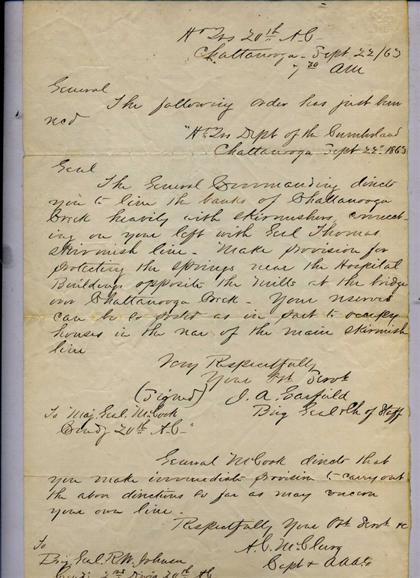 Hd Qrs 20th A.C.
Chattanooga Sept 22/63
7 30 AM
General
The following order has just been
recd
"Hd Qrs Dept of the Cumberland
Chattanooga Sept 22d 1863
Genl
The General Commanding directs
you to line the banks of Chattanooga
Creek heavily with skirmishers, connect-
ing on your left with Genl Thomas
skirmish line. Make provision for
protecting the springs near the Hospital
Buildings opposite the mills at the bridge
over Chattanooga Creek. Your reserves
can be so posted as in part to occupy
houses in the rear of the main skirmish
line
Very Respectfully
Your Obt Servt
(Signed) J. A. Garfield
Brig Genl & Ch of Staff
To Maj Genl McCook
Comdg 20th A.C."
General McCook directs that
you make immediate provision to carry out
the above directions so far as may concern
your own line.
Respectfully Your Obt Servt &c
A.C. McClurg
Capt & AAAG
To
Brig Genl R.W. Johnson
Comdg 2nd Divn 20th AC